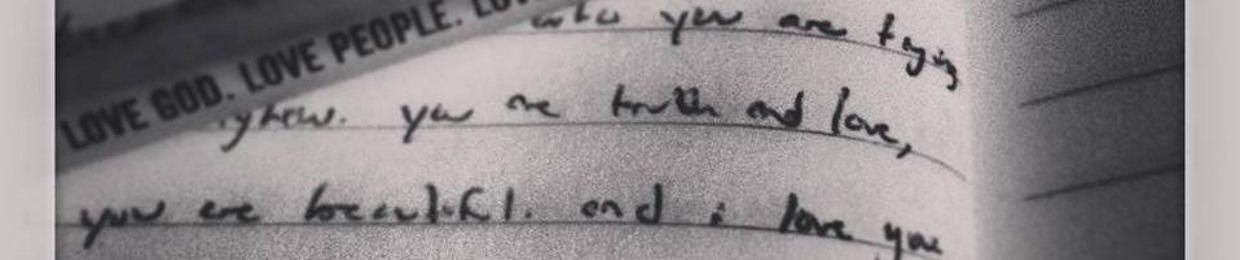 LOVE GOD. LOVE PEOPLE.
who you are trying
you are truth and love,
you are beautiful. and i love you